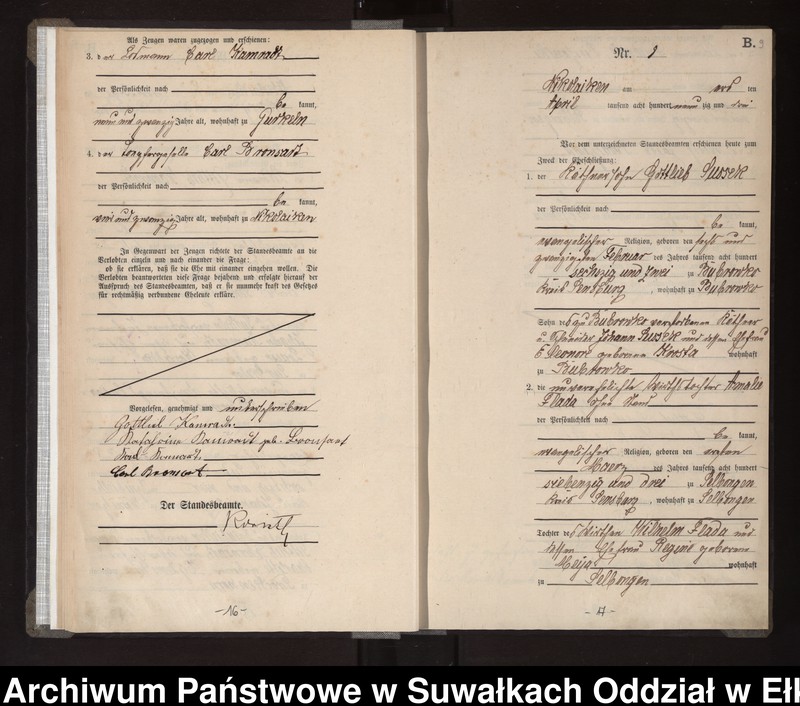 Als Zeugen waren zugezogen und erschienen:
3. der Carl Kamradt
der Persönlichkeit nach
be kannt,
neun und zwanzig Jahre alt, wohnhaft zu Gurkeln
4. der Carl Bronsart
der Persönlichkeit nach
be kannt,
vier und zwanzig Jahre alt, wohnhaft zu Nikolaiken
In Gegenwart der Zeugen richtete der Standesbeamte an die
Verlobten einzeln und nach einander die Frage:
ob sie erklären, daß sie die Ehe mit einander eingehen wollen. Die
Verlobten beantworteten diese Frage bejahend und erfolgte hierauf der
Ausspruch des Standesbeamten, daß er sie nunmehr kraft des Gesetzes
für rechtmäßig verbundene Eheleute erkläre.
Vorgelesen, genehmigt und unterschrieben
Gottlieb Kamradt
Kamradt geb. Bronsart
Karl Kamradt
Carl Bronsart
Der Standesbeamte.
-16-
B. 9
Nr. 9
Nikolaiken am ten
April tausend acht hundert neun zig und drei
Vor dem unterzeichneten Standesbeamten erschienen heute zum
Zweck der Eheschließung:
1. der Käthnersohn Gottlieb Sussek
der Persönlichkeit nach
be kannt,
evangelischer Religion, geboren den sechs und
zwanzigsten Februar des Jahres tausend acht hundert
sechszig und zwei zu Bubrowko
Kreis Sensburg, wohnhaft zu Bubrowko
Sohn des zu Bubrowko verstorbenen Käthner
u. Schneider Johann Sussek und dessen Ehefrau
Eleonore geborene Kosta wohnhaft
zu Bubrowko
2. die unverehelichte Wirthstochter Amalie
Flada ohne Stand
der Persönlichkeit nach
be kannt,
evangelischer Religion, geboren den ersten
Maerz des Jahres tausend acht hundert
siebenzig und drei zu Selbongen
Kreis Sensburg, wohnhaft zu Selbongen
Tochter des Wirthen Wilhelm Flada und
dessen Ehefrau Regine geborene
wohnhaft
zu Selbongen
-17-
Archiwum Państwowe w Suwałkach Oddział w Ełk